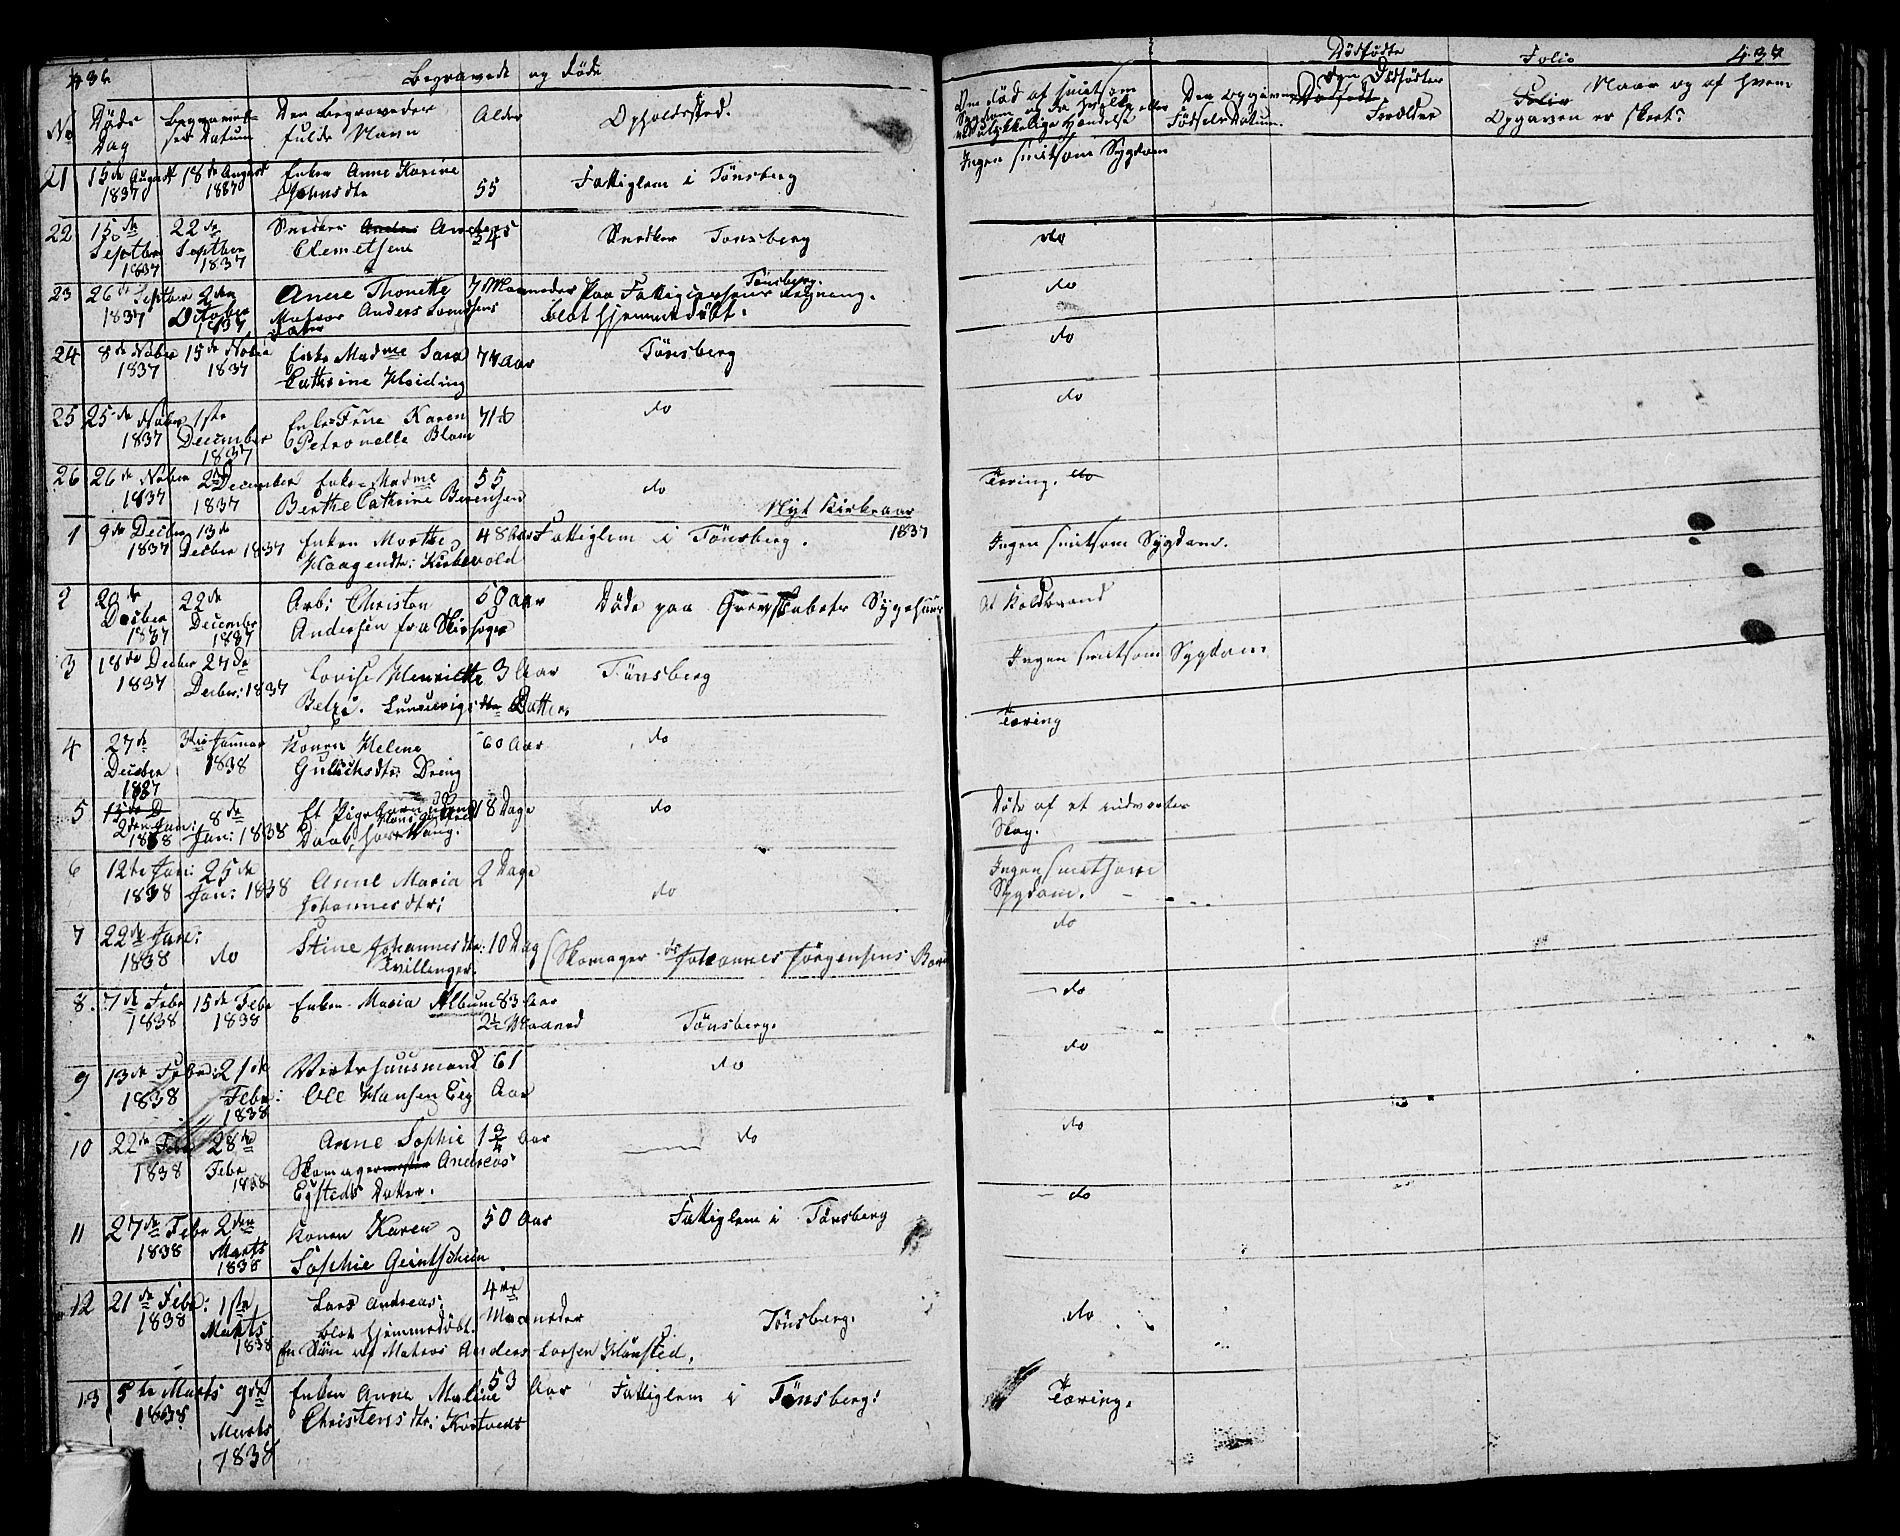 436 Begravede og Døde
No Døds Dag Begravel- ses Datum Den Begravedes fulde Navn Alder Opholdssted.
21 15de August 1837 18de August 1837 Enken Anne Karine Johnsdtr 55 Fattiglem i Tønsberg
22 15de Septber 1837 22de Septber 1837 Snedker Anders Clemetsen 54 Snedker Tønsberg
23 26de Septbr 1837 2den October 1837 Anne Thonette Matros Anders datter 7 Maaneder Paa Fattigvæsenets Regning. Tønsberg.
blot hjemmedøbt.
24 8de Nobr 1837 15de Nobr 1837 Enke Madme Sara Cathrine 77 Aar Tønsberg
25 25de Nober 1837 1ste December 1837 Enke Frue Karen Petronelle Blom 71 do
26 26de Nober 1837 2den December 1837 Enke Madme Berthe Cathrine Berentsen 55 do
Nyt Kirkeaar 1837
1 9de Decber 1837 13de Decber 1837 Enken Marthe Haagendtr: 48 Aar Fattiglem i Tønsberg.
2 20de Decber 1837 22de December 1837 Arb: Christen Andersen fra 50 Aar Døde paa Grevskabets Sygehuus
3 18de Decber 1837 27de Decber: 1837 Lovise Henriette Datter. 3 Aar Tønsberg
4 27de Decber 1837 3die Januar 1838 Konen Helene 60 Aar do
5 2den Jan: 1838 8de Jan: 1838 Et Pigebarn uden Daab, 8 Dage do
6 12te Jan: 1838 25de Jan: 1838 Anne Maria Johannesdtr: 2 Dage do
7 22de Jan: 1838 do Stine Johannesdtr: Tvillinger. 10 Dag (Skomager Johannes Jørgensens Børn
8. 7de Febr 1838 15de Febr 1838 Enken Maria Album 83 Aar 2½ Maaned Tønsberg.
9 13de Febr: 1838 21de Febr: 1838 Vertshuusmand Ole Hansen Eeg 61 Aar do
10 22de Febr 1838 28de Febr 1838 Anne Sophie Skomager Andreas Egsteds Datter. 1 3/4 Aar do
11 27de Febr 1838 2den Marts 1838 Konen Karen Sophie 50 Aar Fattiglem i Tønsberg
12 21de Febr: 1838 1ste Marts 1838 Lars Andreas: blot hjemmedøbt. 4re Maaneder Tønsberg.
En Søn af Matros Anders Larsen
13 5te Marts 1838 9de Marts 1838 Enken Anne Malene Christensdtr: 53 Aar Fattiglem i Tønsberg:
Dødfødte Folio 437
Om død af smitsom Sygdom og da hvilken eller ulykkelige Hændelse Den opgivne Fødsels Datum. Den Dødfødtes Forældre Naar og af hvem Opgaven er skeet?
Ingen smitsom Sygdom
do
do
do
do
Tæring. do
Ingen smitsom Sygdom.
Af Koldbrand
Ingen smitsom Sygdom
Tæring
Døde af et indvortes Slag.
Ingen smitsom Sygdom.
do
do
do
do
do
do
Tæring.